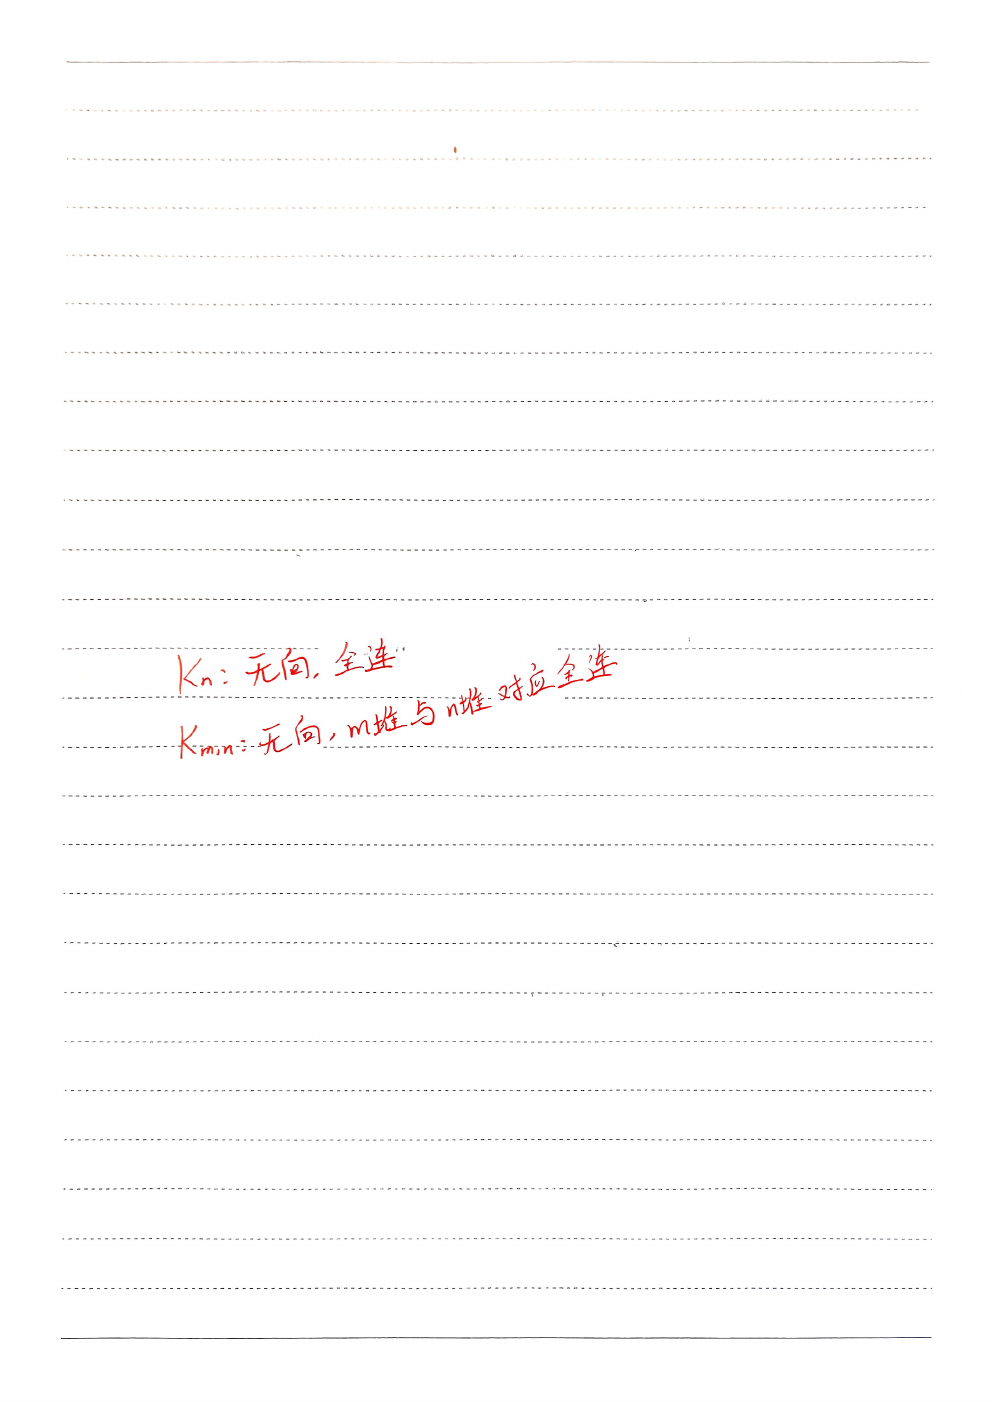 Kn：无向，全连
Km,n：无向，m堆与n堆对应全连